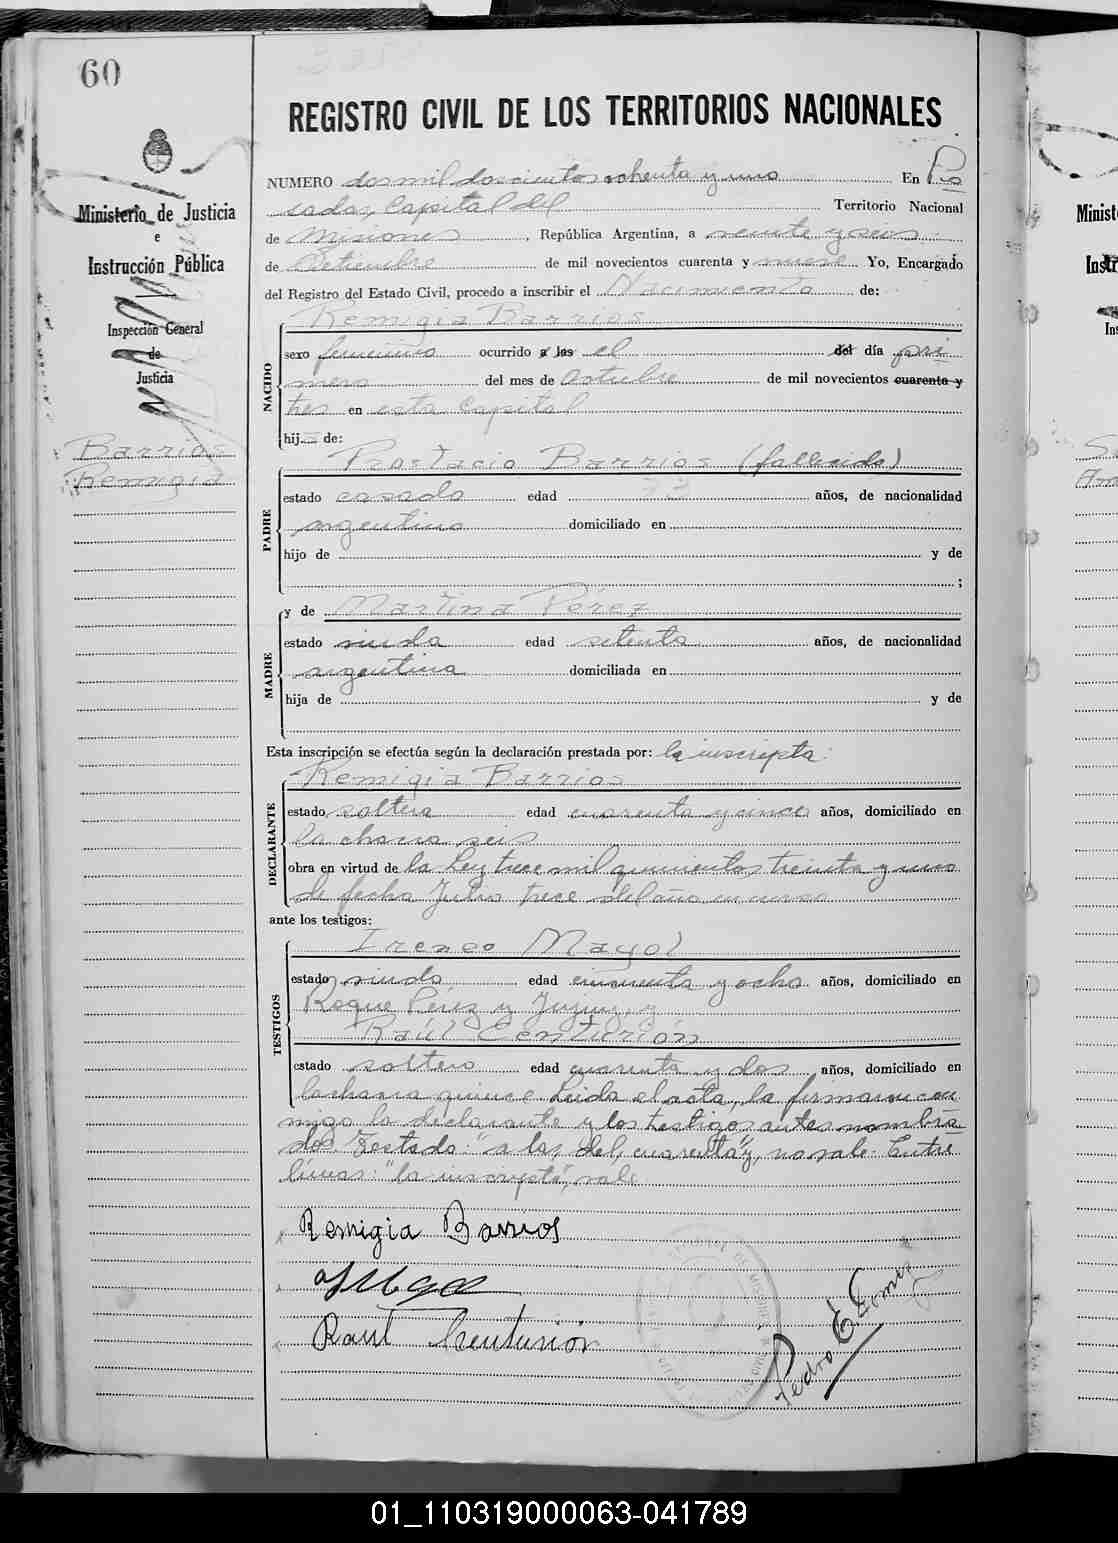 60
REGISTRO CIVIL DE LOS TERRITORIOS NACIONALES
Ministerio de Justicia
e
Instrucción Pública
Inspección General
de
Justicia
Barrios
Remigia
NUMERO dos mil doscientos ochenta y uno En Po
sadas, Capital del Territorio Nacional
de Misiones, República Argentina, a veinte y seis
de Setiembre de mil novecientos cuarenta y nueve Yo, Encargado
del Registro del Estado Civil, procedo a inscribir el Nacimiento de:
NACIDO
Remigia Barrios
sexo femenino ocurrido a las el del día pri
mero del mes de Octubre de mil novecientos cuarenta y
tres en esta Capital
hij de:
PADRE
Protacio Barrios (fallecido)
estado casado edad años, de nacionalidad
argentino domiciliado en
hijo de y de
;
MADRE
y de Martina Pérez
estado viuda edad setenta años, de nacionalidad
argentina domiciliada en
hija de y de
Esta inscripción se efectúa según la declaración prestada por: la inscripta:
DECLARANTE
Remigia Barrios
estado soltera edad cuarenta y cinco años, domiciliado en
la chacra seis
obra en virtud de la Ley trece mil quinientos treinta y uno
de fecha Julio trece del año en curso
ante los testigos:
TESTIGOS
Ireneo Mayol
estado viudo edad cincuenta y ocho años, domiciliado en
Roque Pérez y Jujuy, y
Raúl Centurión
estado soltero edad cuarenta y dos años, domiciliado en
la chacra quince Leída el acta, la firmaron con
migo la declarante y los testigos antes nombra
dos. Testado: "a las, del, cuarenta y", no vale. Entre
líneas: "la inscripta", vale
Remigia Barrios
Raul Centurión
Pedro E Gomez
01_110319000063-041789